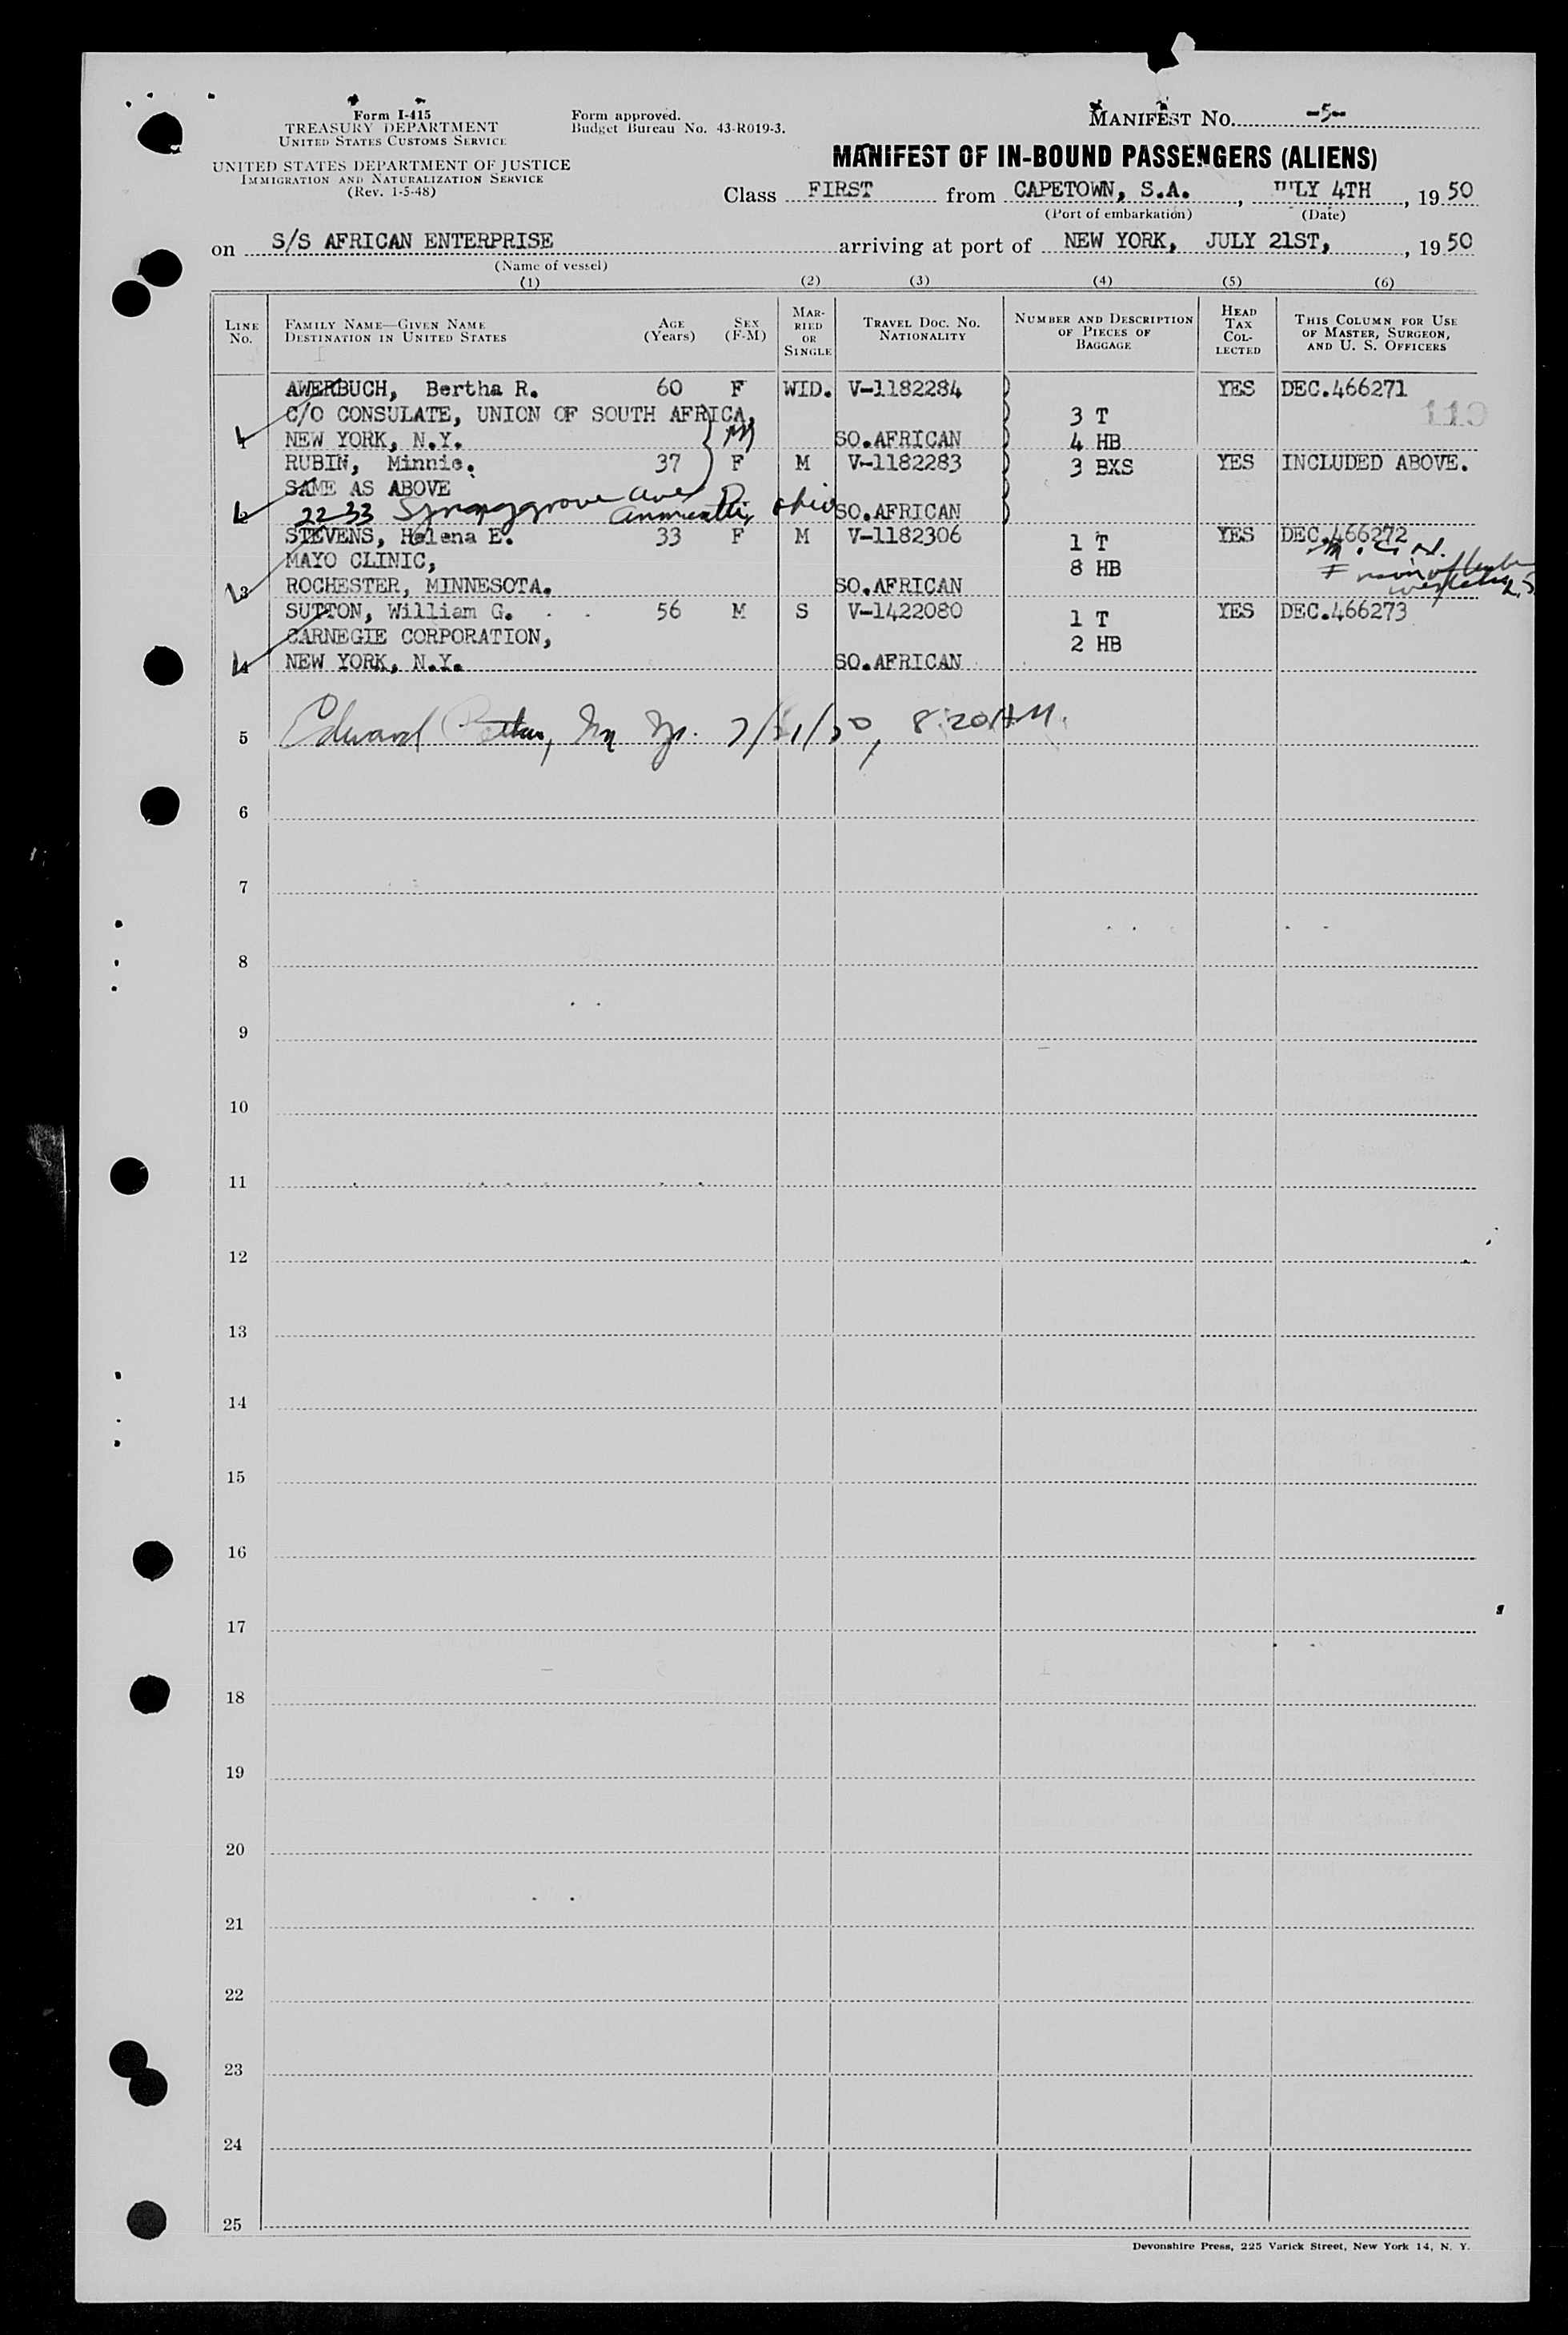 Form I-415
TREASURY DEPARTMENT
UNITED STATES CUSTOMS SERVICE
UNITED STATES DEPARTMENT OF JUSTICE
IMMIGRATION AND NATURALIZATION SERVICE
(Rev. 1-5-48)
Form approved.
Budget Bureau No. 43-R019-3.
MANIFEST No. -5-
MANIFEST OF IN-BOUND PASSENGERS (ALIENS)
Class FIRST from CAPETOWN, S.A., JULY 4TH, 1950
(Port of embarkation) (Date)
on S/S AFRICAN ENTERPRISE arriving at port of NEW YORK, JULY 21ST, , 1950
(Name of vessel)
(1) (2) (3) (4) (5) (6)
LINE No. FAMILY NAME—GIVEN NAME DESTINATION IN UNITED STATES AGE (Years) SEX (F-M) MARRIED OR SINGLE TRAVEL DOC. NO. NATIONALITY NUMBER AND DESCRIPTION OF PIECES OF BAGGAGE HEAD TAX COLLECTED THIS COLUMN FOR USE OF MASTER, SURGEON, AND U. S. OFFICERS
AWERBUCH, Bertha R. 60 F WID. V-1182284 YES DEC.466271
C/O CONSULATE, UNION OF SOUTH AFRICA, 3 T
1 NEW YORK, N.Y. SO.AFRICAN 4 HB
RUBIN, Minnie. 37 F M V-1182283 3 BXS YES INCLUDED ABOVE.
SAME AS ABOVE
2 2233 Ave Ohio SO.AFRICAN
STEVENS, Helena E. 33 F M V-1182306 1 T YES DEC.466272
MAYO CLINIC, 8 HB
3 ROCHESTER, MINNESOTA. SO.AFRICAN
SUTTON, William G. 56 M S V-1422080 1 T YES DEC.466273
CARNEGIE CORPORATION, 2 HB
4 NEW YORK, N.Y. SO.AFRICAN
5 Edward 7/21/50, 8:20 AM.
6
7
8
9
10
11
12
13
14
15
16
17
18
19
20
21
22
23
24
25
Devonshire Press, 225 Varick Street, New York 14, N. Y.